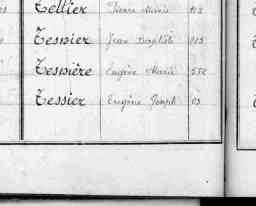 Tellier Pierre Marie
Tesnier Jean Baptiste
Tesnière Eugène Marie 552
Tessier Eugène Joseph